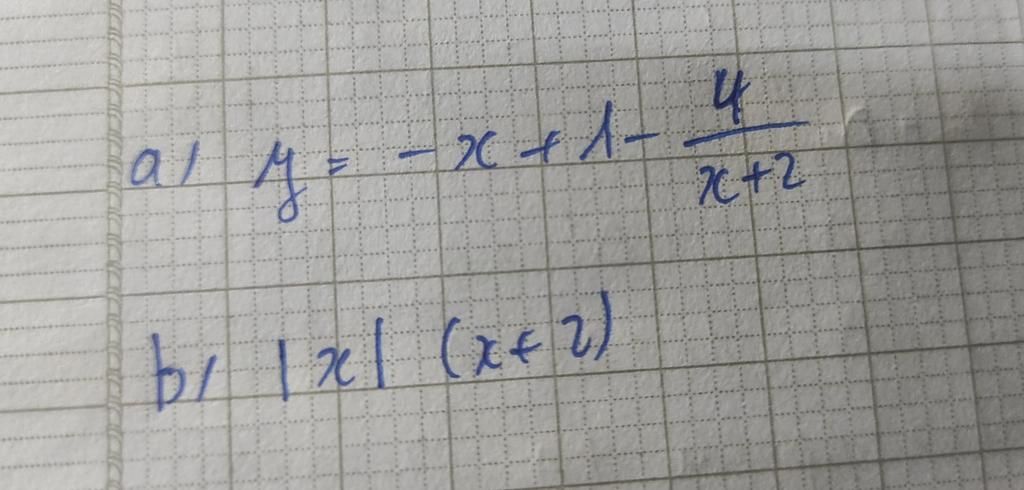 a) y = -x + 1 - \frac{4}{x+2}
b) |x| (x+2)